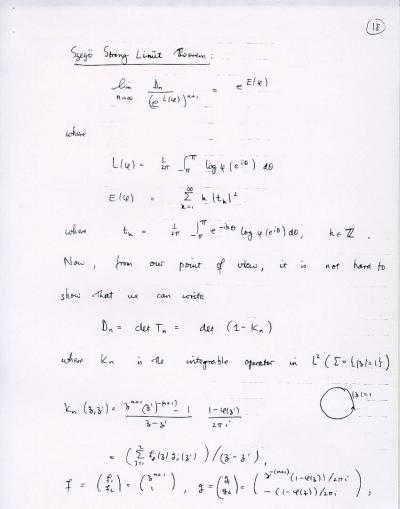 18
Szegö Strong Limit Theorem:
lim n→∞ Dn / (e^{L(φ)})^{n+1} = e^{E(φ)}
where
L(φ) = 1/2π ∫_{-π}^{π} log φ(e^{iθ}) dθ
E(φ) = Σ_{k=1}^{∞} k |t_k|²
where t_k = 1/2π ∫_{-π}^{π} e^{-ikθ} log φ(e^{iθ}) dθ, k ∈ ℤ.
Now, from our point of view, it is not hard to
show that we can write
Dn = det Tn = det (1 - Kn)
where Kn is the integrable operator in L² (Σ = {|z|=1})
|z|=1
Kn (z, z') = (z^{n+1} (z')^{-(n+1)} - 1) / (z - z') (1 - φ(z')) / 2πi
= (Σ_{j=1}^{2} f_j(z) g_j(z')) / (z - z'),
f = (f_1 f_2) = (z^{n+1} 1), g = (g_1 g_2) = (z^{-(n+1)} (1-φ(z))/2πi -(1-φ(z))/2πi),